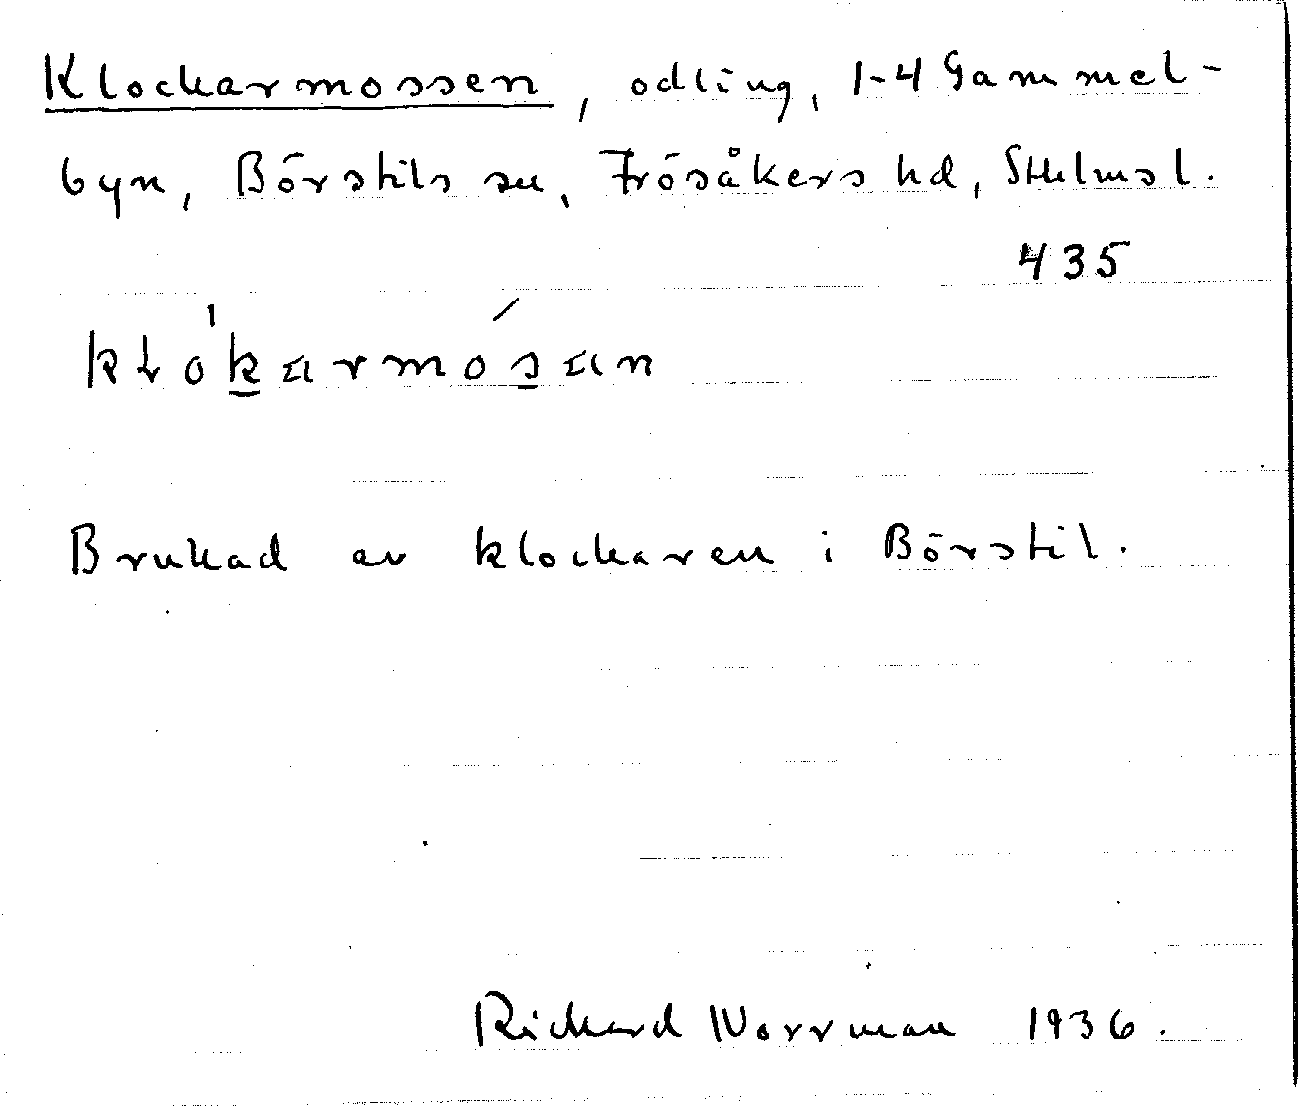 Klockarmossen, odling, 1-4 Gammel-
byn, Börstils sn, Frösåkers hd, Sthlmsl.
435
kło̍k̲armós̲an
Brukad av klockaren i Börstil.
Richard Norrman 1936.